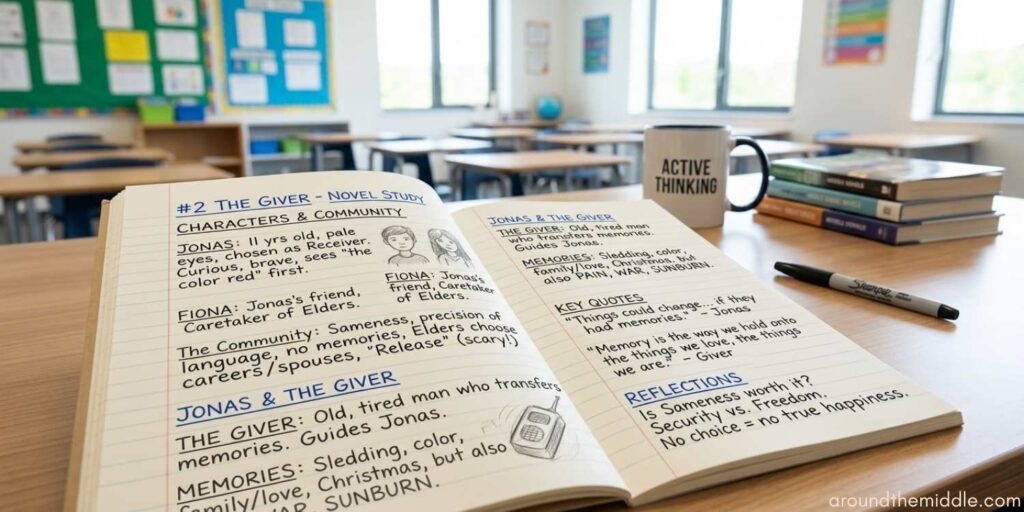 #2 THE GIVER - NOVEL STUDY
CHARACTERS & COMMUNITY
JONAS: 11 yrs old, pale
eyes, chosen as Receiver.
Curious, brave, sees "the
color red" first.
FIONA: Jonas's friend,
Caretaker of Elders.
FIONA: Jonas's
friend, Caretaker
of Elders.
The Community: Sameness, precision of
language, no memories, Elders choose
careers/spouses, "Release" (scary!)
JONAS & THE GIVER
THE GIVER: Old, tired man who transfers
memories. Guides Jonas.
MEMORIES: Sledding, color,
family/love, Christmas, but also
WAR, SUNBURN.
JONAS & THE GIVER
THE GIVER: Old, tired man
who transfers memories.
Guides Jonas.
MEMORIES: Sledding, color,
family/love, Christmas, but
also PAIN, WAR, SUNBURN.
KEY QUOTES
"Things could change... if they
had memories." - Jonas
"Memory is the way we hold onto
the things we love, the things
we are." - Giver
REFLECTIONS
Is Sameness worth it?
Security vs. Freedom.
No choice = no true happiness.
ACTIVE
THINKING
Sharpie
aroundthemiddle.com